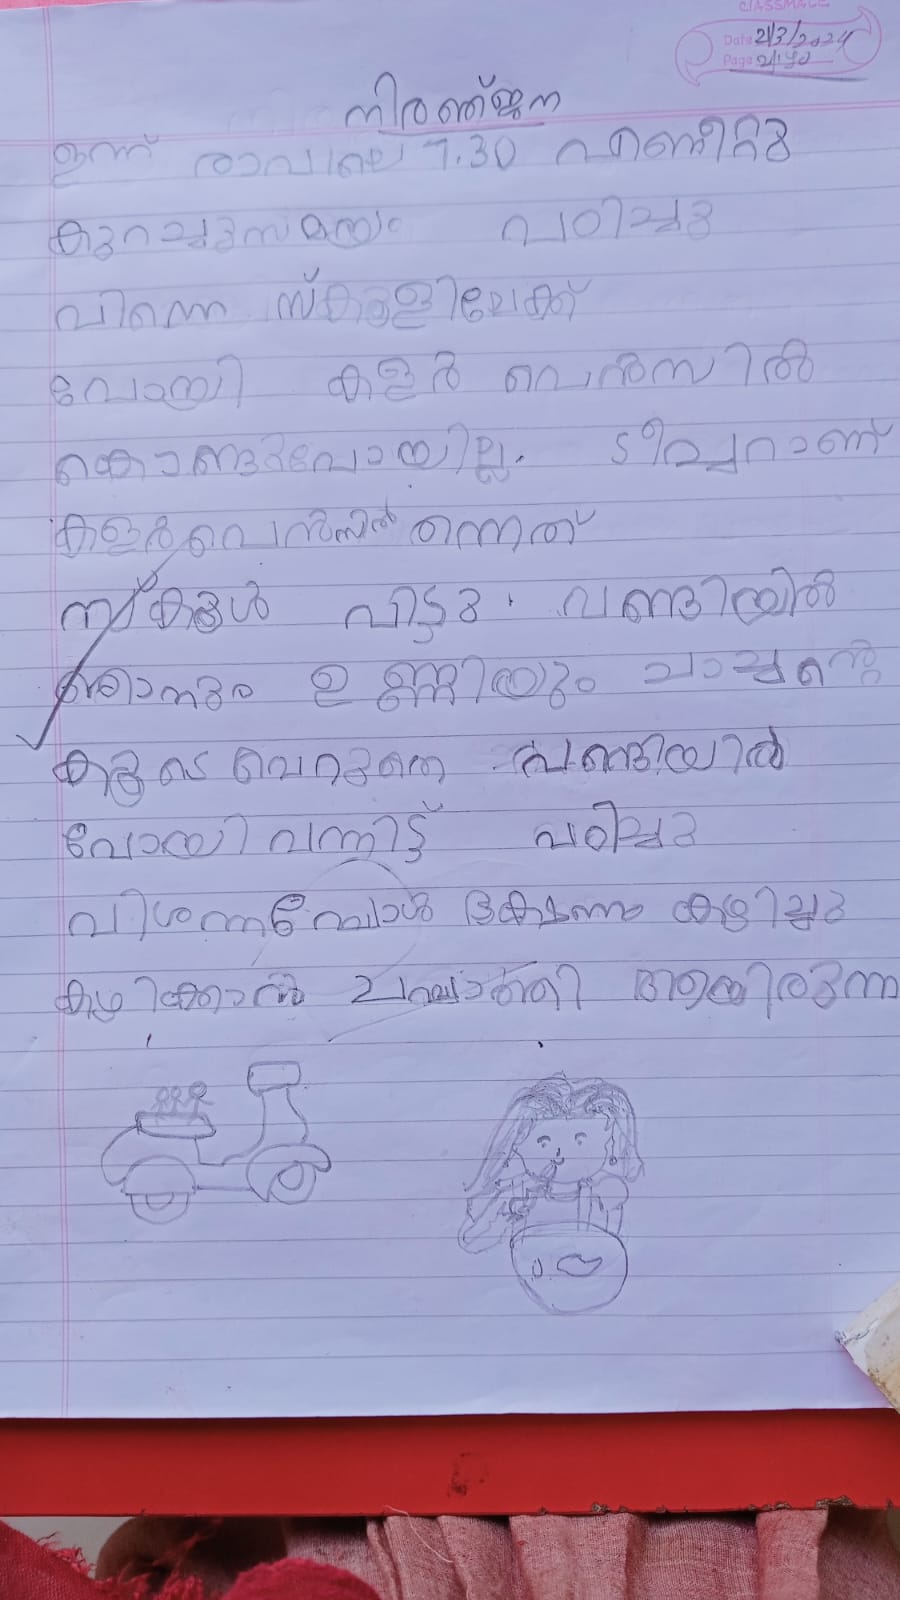 CLASSMATE
Date 21/3/2024
Page
നിരഞ്ജന
ഇന്ന് രാവിലെ 7.30 എണീറ്റു
കുറച്ചുസമയം പഠിച്ചു
പിന്നെ സ്കൂളിലേക്ക്
പോയി കളർ പെൻസിൽ
കൊണ്ടുപോയില്ല. ടീച്ചറാണ്
കളർപെൻസിൽ തന്നെത്
സ്കൂൾ വിട്ടു. വണ്ടിയിൽ
ഞാനും ഉണ്ണിയും ചാച്ചന്റെ
കൂടെ വെറുതെ വണ്ടിയിൽ
പോയി വന്നിട്ട് പഠിച്ചു
വിശന്നപ്പോൾ ഭക്ഷണം കഴിച്ചു
കഴിക്കാൻ ചപ്പാത്തി ആയിരുന്ന